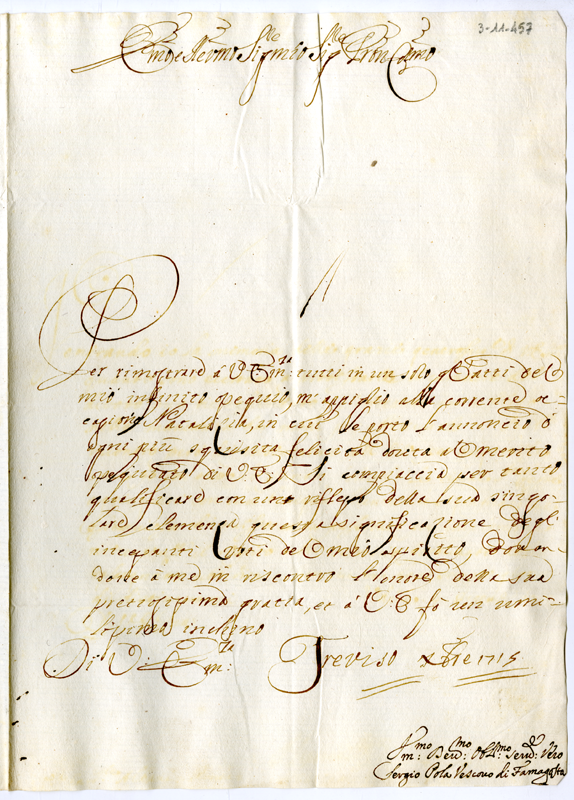 3-11-457
Emo e Revmo Sigre mio Sigre Pron Colmo
Per rimostrare á V: Emza: tutti in un solo gl'atti del
mio infinito ossequio, m'appiglio alla corrente oc-
casione Natalizia, in cui le porto l'annoncio d'
ogni più squisita felicità dovuta al merito
di V: E: Si compiaccia per tanto
qualificare con un riflesso della sua singo-
lare clemenza questa significazione degl'
voti del mio spirito, donan-
done à me in riscontro l'onore della sua
pretiosissima gratia, et à V: E fò un umi-
lissimo inchino
Di V: Emza:
Treviso Xbre
Vmo: Devmo: Obbmo: Serve: Vero
Sergio Pola Vescovo di Famagosta